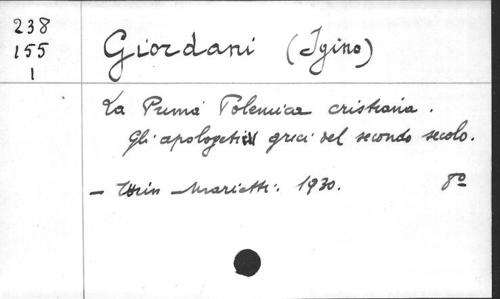 238
155
1
Giordani (Igino)
La Prima Polemica cristiana.
Gli apologeti greci del secondo secolo.
- Turin - Marietti. 1930. 8º